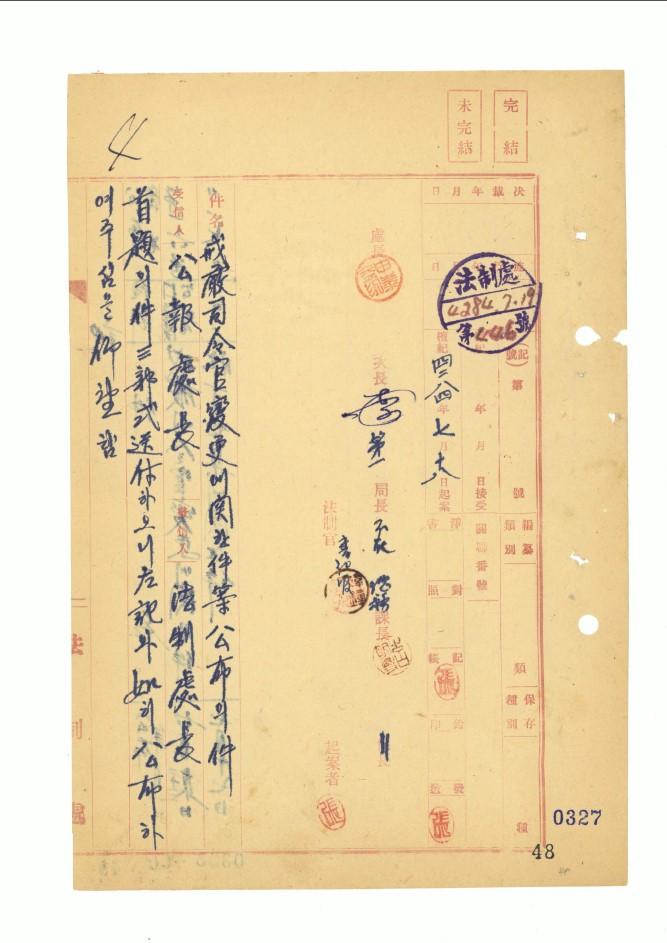 完結
未完結
決裁年月日
法制處
4284.7.19
第446號
記號
第 號
編纂類別
類
保存種別
種
年 月 日接受
關聯番號
檀紀四二八四年七月十八日起案
淨書
對照
記帳
張
鈐印
發送
張
處長
次長
第一局長
課長
法制官
起案者
張
件名 戒嚴司令官變更에関한件案公布의件
受信人 公報處長 發信人 法制處長
首題의件三部式送付하오니左記와如히公布하
여주심을仰望함
法制處
0327
48